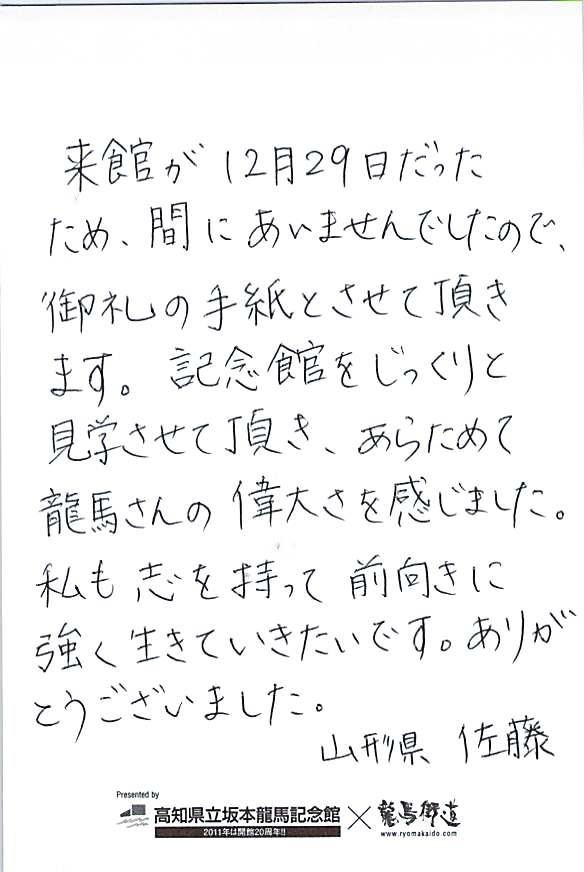 来館が12月29日だった
ため、間にあいませんでしたので、
御礼の手紙とさせて頂き
ます。記念館をじっくりと
見学させて頂き、あらためて
龍馬さんの偉大さを感じました。
私も志を持って前向きに
強く生きていきたいです。ありが
とうございました。
山形県 佐藤
Presented by
高知県立坂本龍馬記念館 × 龍馬街道
2011年は開館20周年!!
www.ryomakaido.com